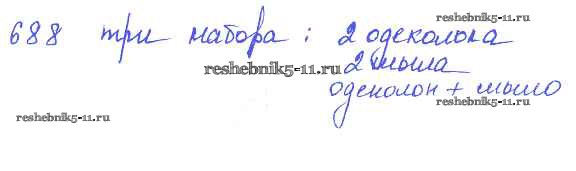 688 три набора : 2 одеколона
reshebnik5-11.ru
2 мыла
reshebnik5-11.ru
одеколон + мыло
reshebnik5-11.ru